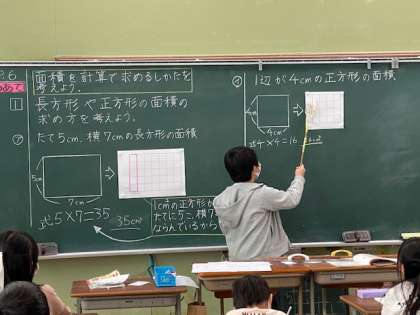 面積を計算で求めるしかたを
考えよう。
1
長方形や正方形の面積の
求め方を考えよう。
㋐ たて5cm、横7cmの長方形の面積
5cm
7cm
式 5×7=35 35cm²
1cmの正方形が
たてに5こ、横7
ならんでいるから
㋑ 1辺が4cmの正方形の面積
4cm
4cm
式 4×4=16